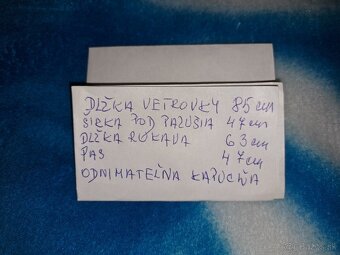 DLŽKA VETROVKY 85 cm
ŠIRKA POD PAZUŠIA 47 cm
DLŽKA RUKAVA 63 cm
PAS 47 cm
ODNIMATEĽNA KAPUCŇA